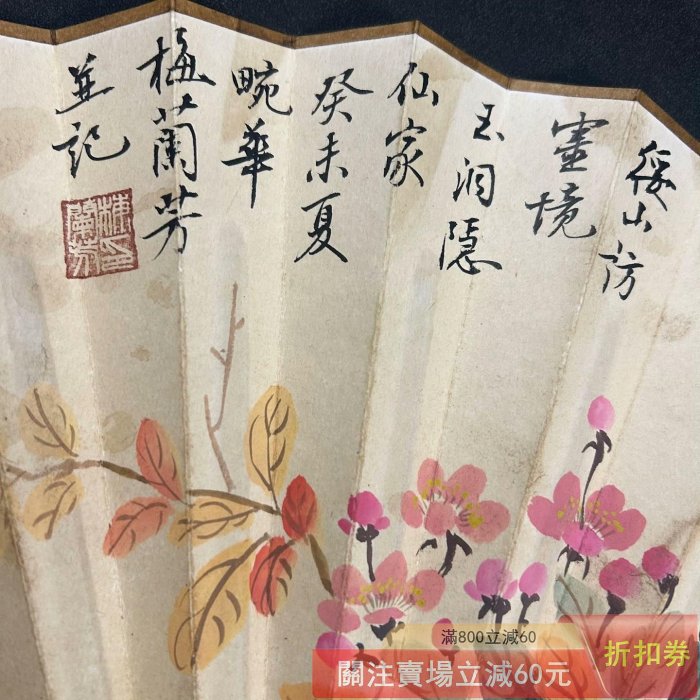 綏山訪
靈境
玉洞隱
仙家
癸未夏
畹華
梅蘭芳
並記
梅蘭芳印
滿800立減60
關注賣場立減60元
折扣券